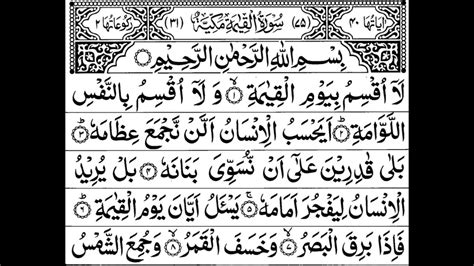 اٰیَاتُهَا ٤٠ (٧٥) سُوْرَةُ الْقِیٰمَةِ مَكِّیَّةٌ (٣١) رُكُوْعَاتُهَا ٢
بِسْمِ اللّٰهِ الرَّحْمٰنِ الرَّحِیْمِ
لَاۤ اُقْسِمُ بِیَوْمِ الْقِیٰمَةِ ۝١ وَ لَاۤ اُقْسِمُ بِالنَّفْسِ
اللَّوَّامَةِ ۝٢ اَیَحْسَبُ الْاِنْسَانُ اَلَّنْ نَّجْمَعَ عِظَامَهٗ ۝٣
بَلٰى قٰدِرِیْنَ عَلٰۤى اَنْ نُّسَوِّیَ بَنَانَهٗ ۝٤ بَلْ یُرِیْدُ
الْاِنْسَانُ لِیَفْجُرَ اَمَامَهٗ ۝٥ یَسْـَٔلُ اَیَّانَ یَوْمُ الْقِیٰمَةِ ۝٦
فَاِذَا بَرِقَ الْبَصَرُ ۝٧ وَ خَسَفَ الْقَمَرُ ۝٨ وَ جُمِعَ الشَّمْسُ